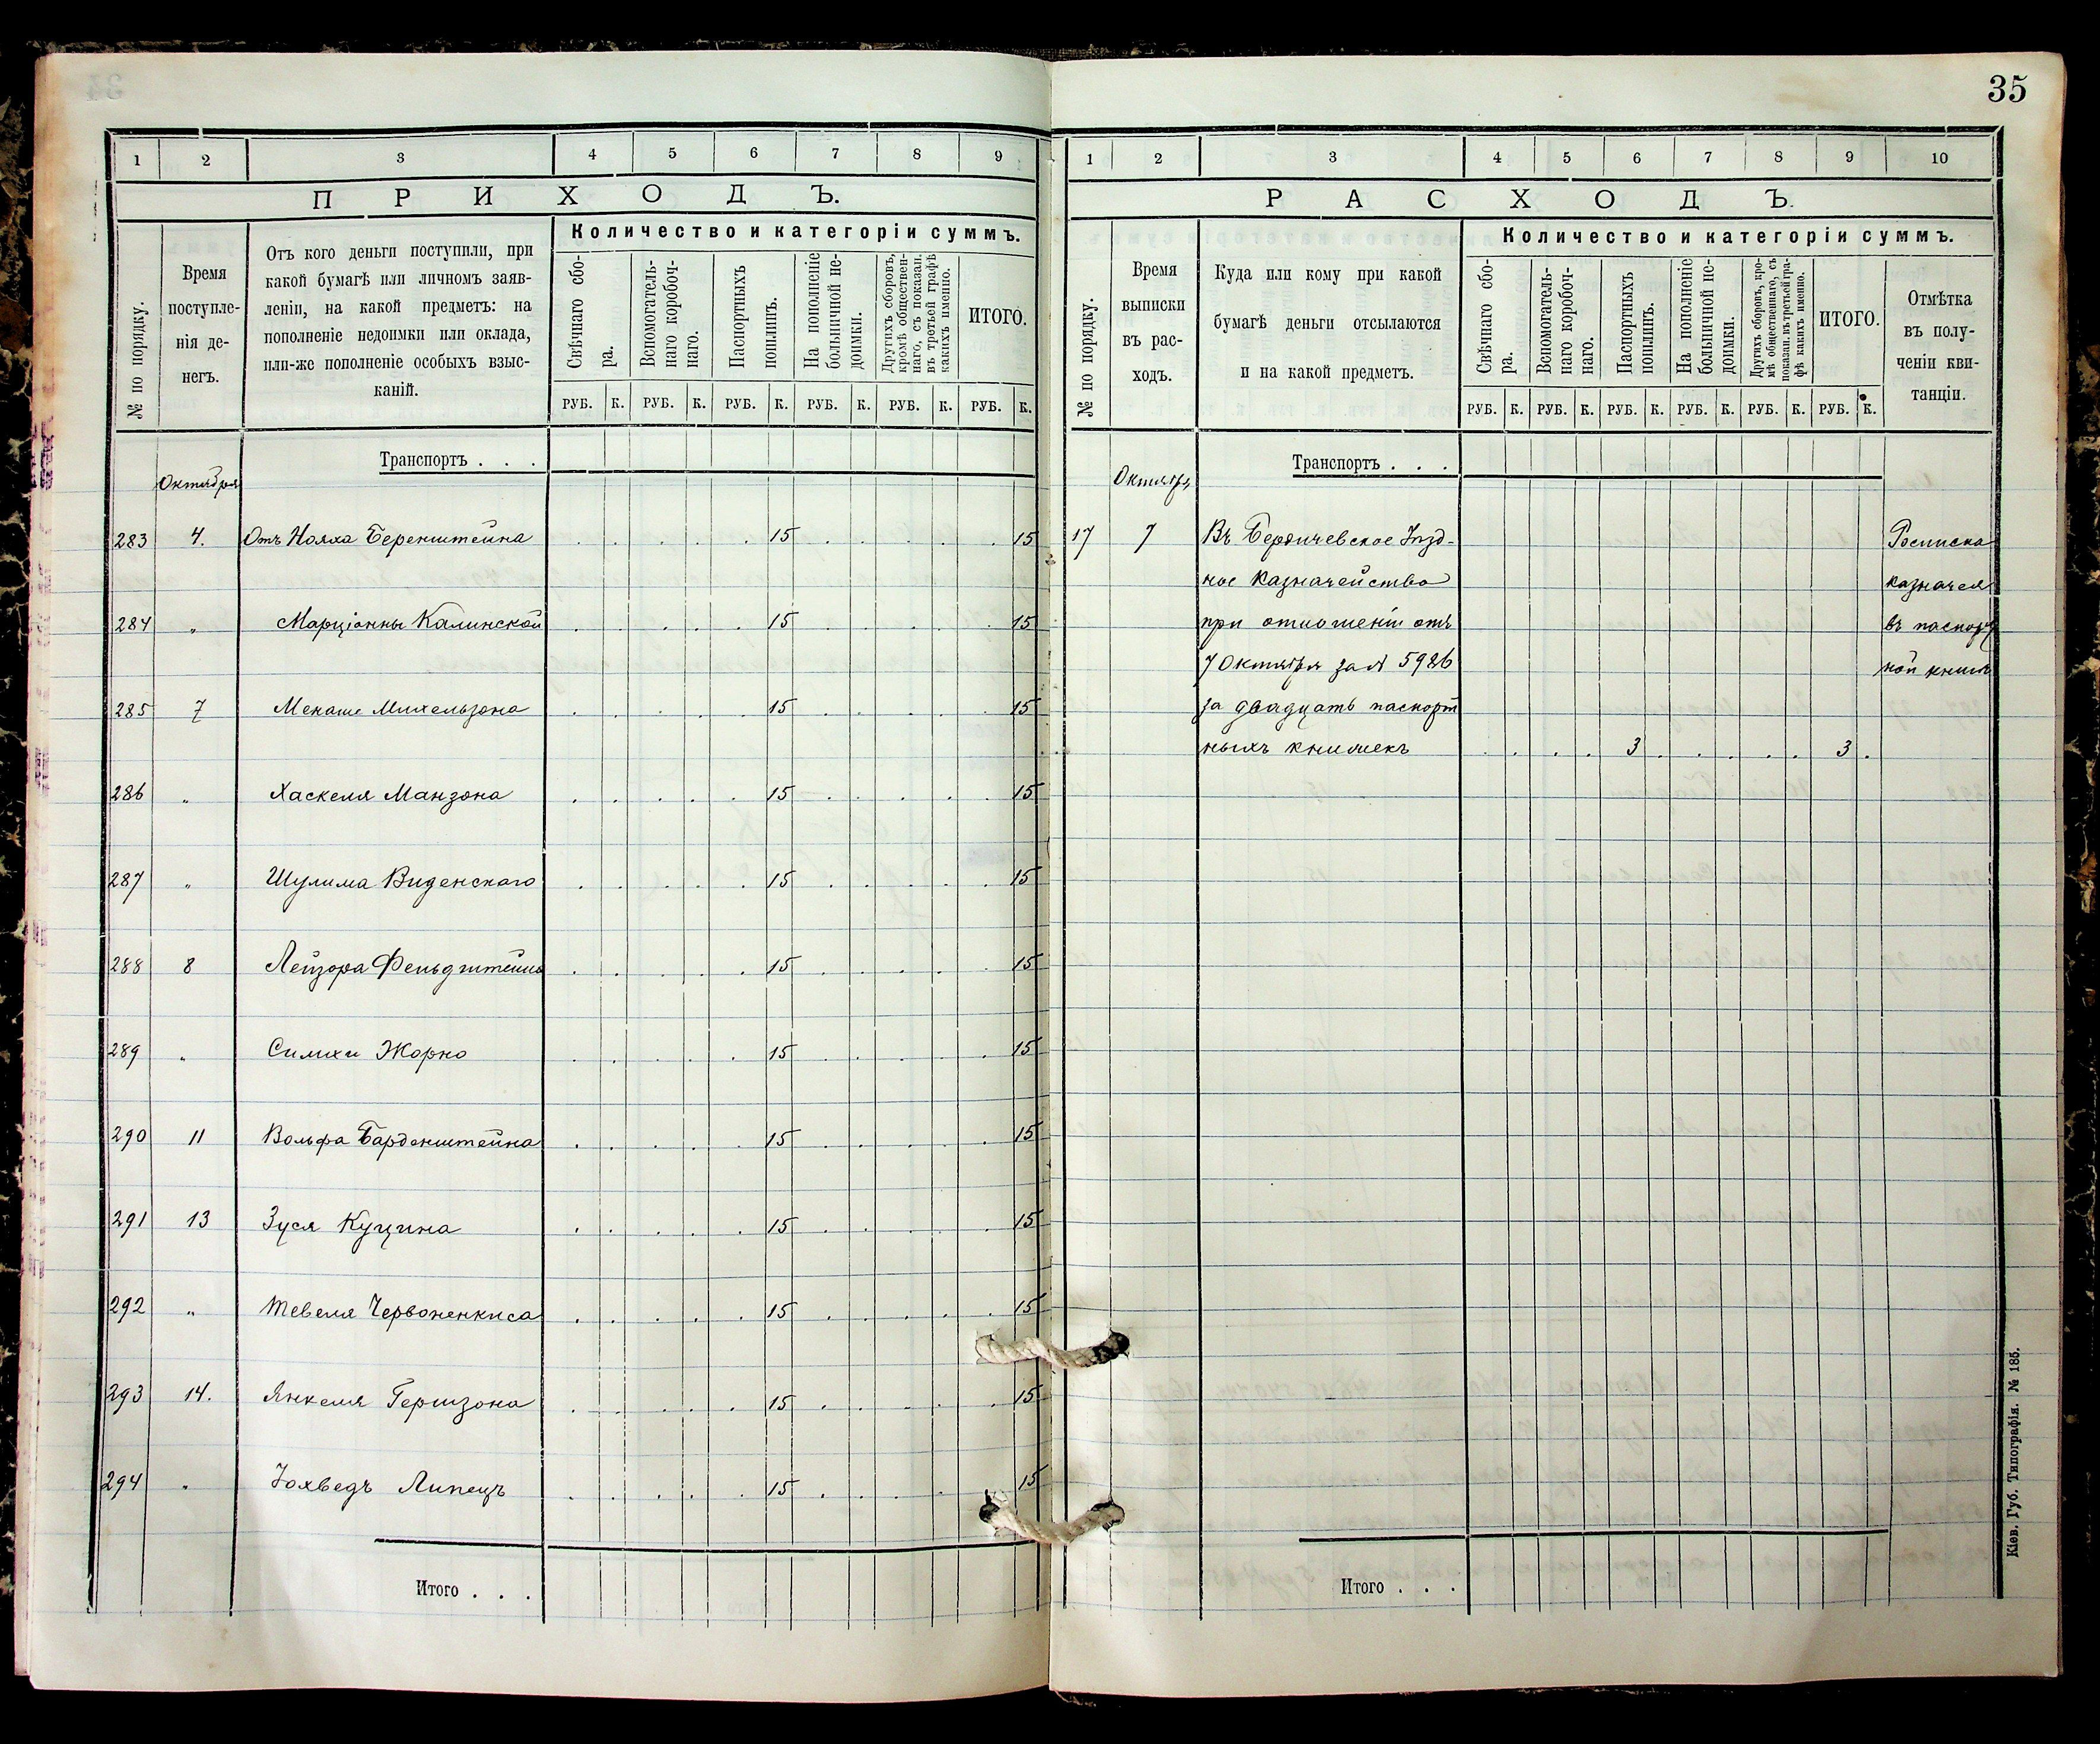 35
1 2 3 4 5 6 7 8 9
ПРИХОДЪ.
№ по порядку.
Время
поступле-
нія де-
негъ.
Отъ кого деньги поступили, при
какой бумагѣ или личномъ заяв-
леніи, на какой предметъ: на
пополненіе недоимки или оклада,
или-же пополненіе особыхъ взыс-
каній.
Количество и категоріи суммъ.
Свѣчнаго сбо-
ра.
Вспомогатель-
наго коробоч-
наго.
Паспортныхъ
пошлинъ.
На пополненіе
больничной не-
доимки.
Другихъ сборовъ,
кромѣ обществен-
наго, съ показан.
въ третьей графѣ
какихъ именно.
ИТОГО.
РУБ. К. РУБ. К. РУБ. К. РУБ. К. РУБ. К. РУБ. К.
Транспортъ . . .
Октября
283 4. Отъ Нояха Беренштейна 15 15
284 " Марціанны Калинской 15 15
285 7 Менаше Михельзона 15 15
286 " Хаскеля Манзона 15 15
287 " Шулима Виденскаго 15 15
288 8 Лейзора Фельдштейна 15 15
289 " Симхи Жорно 15 15
290 11 Вольфа Барденштейна 15 15
291 13 Зуся Куцина 15 15
292 " Тевеля Червоненкиса 15 15
293 14. Янкеля Гершзона 15 15
294 " Іохведъ Липецъ 15 15
Итого . . .
1 2 3 4 5 6 7 8 9 10
РАСХОДЪ.
№ по порядку.
Время
выписки
въ рас-
ходъ.
Куда или кому при какой
бумагѣ деньги отсылаются
и на какой предметъ.
Количество и категоріи суммъ.
Свѣчнаго сбо-
ра.
Вспомогатель-
наго коробоч-
наго.
Паспортныхъ
пошлинъ.
На пополненіе
больничной не-
доимки.
Другихъ сборовъ, кро-
мѣ общественнаго, съ
показан. въ третьей гра-
фѣ какихъ именно.
ИТОГО.
Отмѣтка
въ полу-
ченіи кви-
танціи.
РУБ. К. РУБ. К. РУБ. К. РУБ. К. РУБ. К. РУБ. К.
Транспортъ . . .
Октября
17 7 Въ Бердичевское Уѣзд- Росписка
ное Казначейство казначея
при отношеніи отъ въ паспорт
7 Октября за № 5926 ной книгѣ
за двадцать паспорт
ныхъ книжекъ 3 3
Итого . . .
Кіев. Губ. Типографія. № 185.